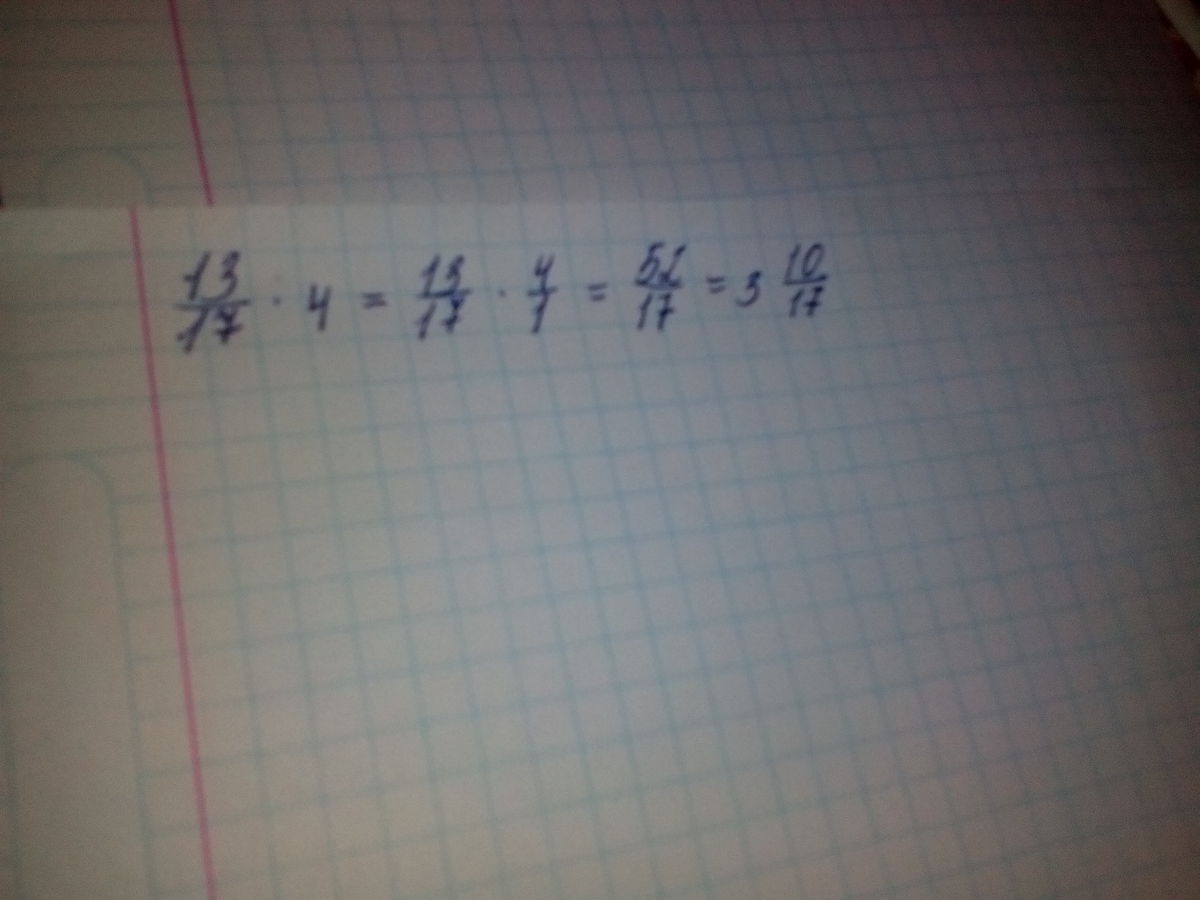 13/17 · 4 = 13/17 · 4/1 = 52/17 = 3 10/17